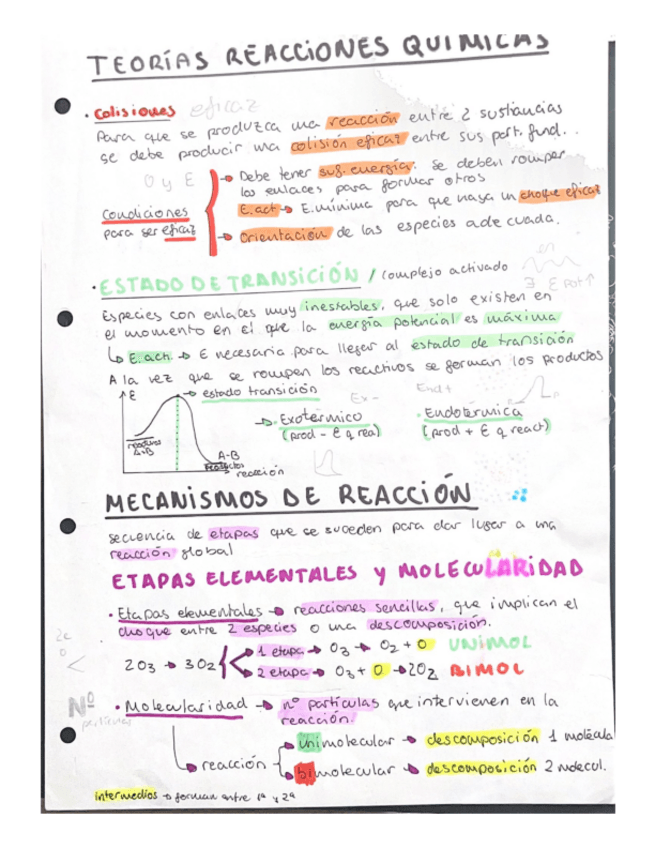 TEORÍAS REACCIONES QUIMICAS
· Colisiones eficaz
Para que se produzca una reacción entre 2 sustancias
se debe producir una colisión eficaz entre sus part. fund..
O y E
Condiciones para ser eficaz
→ Debe tener suf. energía. Se deben romper
los enlaces para formar otros
E.act → E.mínima para que haya un choque eficaz
→ Orientación de las especies adecuada.
· ESTADO DE TRANSICIÓN / complejo activado
en
∃ E pot ↑
Especies con enlaces muy inestables, que solo existen en
el momento en el que la energía potencial es máxima
↳ E.act. → E necesaria para llegar al estado de transición
A la vez que se rompen los reactivos se forman los productos
E
→ estado transición
reactivos
A+B
A-B
Productos
reacción
Ex -
→ · Exotérmico
(prod - E q rea)
End +
· Endotérmica
(prod + E q react)
MECANISMOS DE REACCIÓN
secuencia de etapas que se suceden para dar lugar a una
reacción global
ETAPAS ELEMENTALES y MOLECULARIDAD
· Etapas elementales → reacciones sencillas, que implican el
choque entre 2 especies o una descomposición.
2O3 → 3O2
1 etapa → O3 → O2 + O UNIMOL
2 etapa → O3 + O → 2O2 BIMOL
Nº
partículas
· Molecularidad → nº partículas que intervienen en la
reacción.
→ reacción
→ unimolecular → descomposición 1 molécula
→ bimolecular → descomposición 2 molecul.
intermedios → forman entre 1ª y 2ª